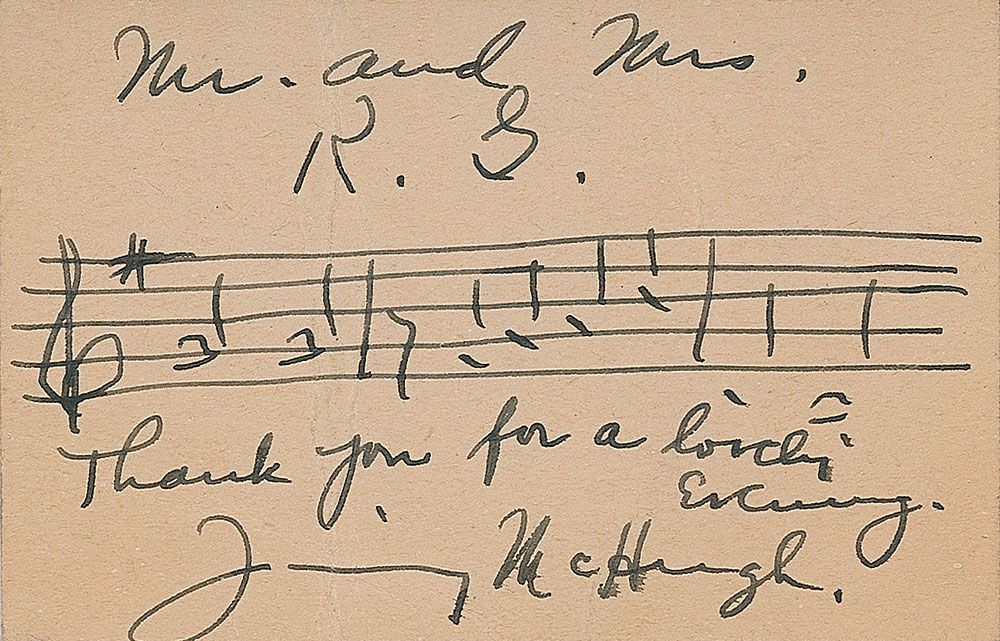 Mr. and Mrs.
R. G.
Thank you for a lovely
Evening.
Jimmy McHugh.